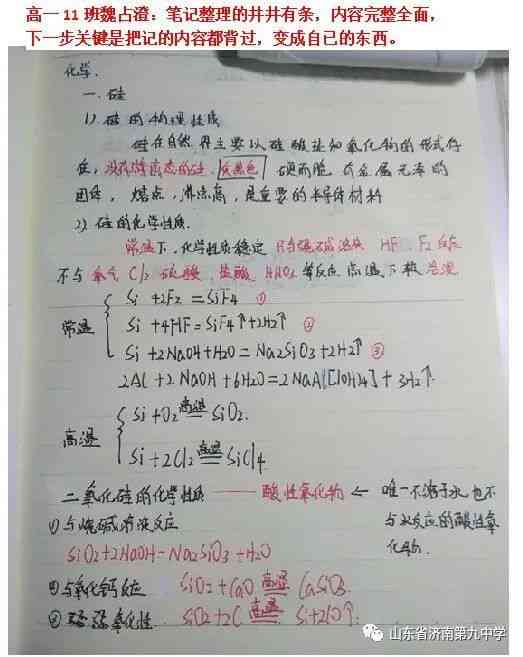 高一 11 班魏占澄：笔记整理的井井有条，内容完整全面，
下一步关键是把记的内容都背过，变成自已的东西。
化学.
一. 硅
1) 硅的物理性质
硅在自然界主要以硅酸盐和氧化物的形式存
在，没有游离态的硅. 灰黑色 硬而脆 有金属光泽的
固体， 熔点，沸点高，是重要的半导体材料
2) 硅的化学性质.
常温下，化学性质稳定 只与强碱溶液 HF. F2 反应
不与氧气 Cl2 硫酸，盐酸 HNO3 等反应 高温下
Si +2F2 =SiF4 ①
常温 Si +4HF=SiF4↑+2H2↑ ②
Si +2NaOH+H2O= Na2SiO3+2H2↑ ③
2Al +2NaOH+6H2O=2NaAl[(OH)4] + 3H2↑
Si+O2 高温 SiO2.
高温
Si+2Cl2 高温 SiCl4
二氧化硅的化学性质 —— 酸性氧化物 ← 唯一不溶于水也不
与水反应的酸性氧
化物.
① 与烧碱溶液反应
SiO2+2NaOH=Na2SiO3+H2O
② 与氧化钙反应 SiO2+CaO 高温 CaSiO3
弱氧化性 SiO2+2C 高温 Si+2CO↑.
山东省济南第九中学